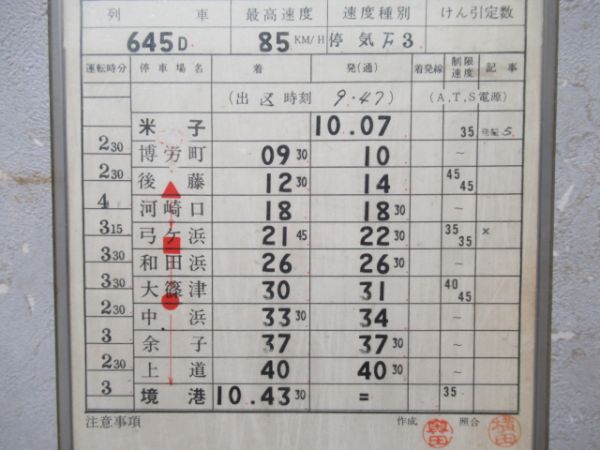 列車 最高速度 速度種別 けん引定数
645D 85 KM/H 停気 3
運転時分 停車場名 着 発(通) 着発線 制限速度 記事
(出区時刻 9.47) (A,T,S電源)
米子 10.07 35
2 30
博労町 09 30 10 ~
2 30
後藤 12 30 14 45 45
4
河崎口 18 18 30 ~
3 15
弓ケ浜 21 45 22 30 35 35 ×
3 30
和田浜 26 26 30 ~
3 30
大篠津 30 31 40 45
2 30
中浜 33 30 34 ~
3
余子 37 37 30 ~
2 30
上道 40 40 30 ~
3
境港 10.43 30 = 35
注意事項 作成 奥田 照合 横田